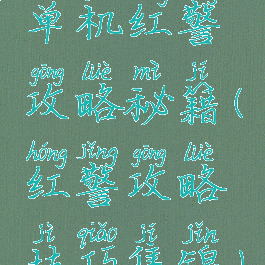 单机红警
gōng lüè mì jí
攻略秘籍(
hóng jǐng gōng lüè
红警攻略
jì qiǎo jí jǐn
技巧集锦)